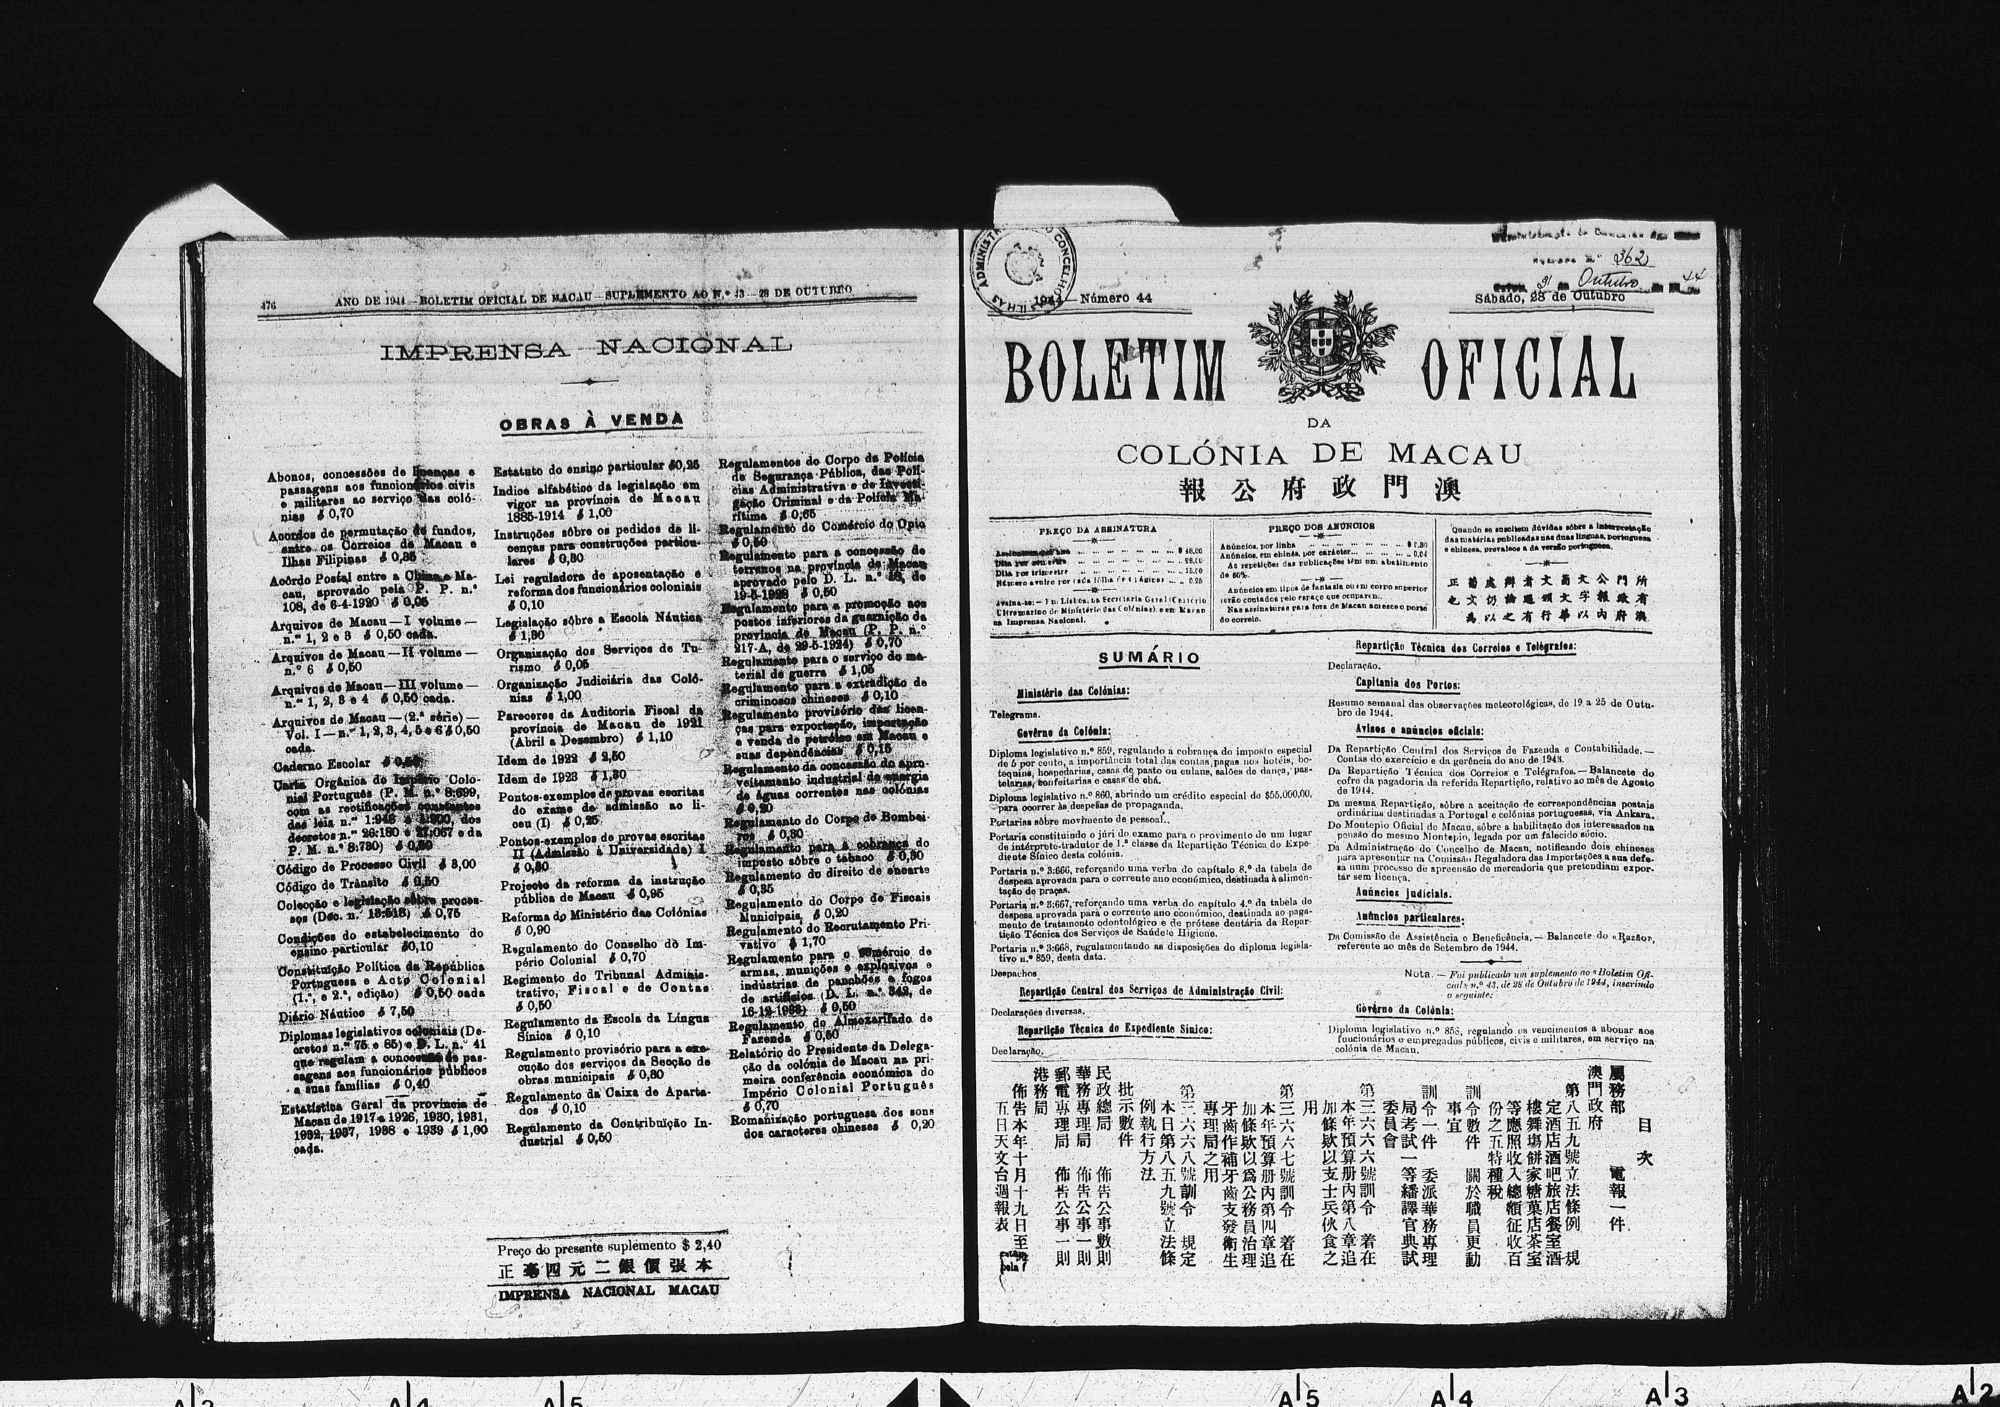 476
ANO DE 1944—BOLETIM OFICIAL DE MACAU—SUPLEMENTO AO N.º 43—28 DE OUTUBRO
IMPRENSA NACIONAL
OBRAS À VENDA
Abonos, concessões de licenças e
passagens aos funcionários civis
e militares ao serviço das coló-
nias $ 0,70
Acordos de permutação de fundos,
entre os Correios de Macau e
Ilhas Filipinas $ 0,35
Acôrdo Postal entre a China e Ma-
cau, aprovado pela P. P. n.º
108, de 6-4-1920 $ 0,05
Arquivos de Macau—I volume—
n.ºˢ 1, 2 e 3 $ 0,50 cada.
Arquivos de Macau—II volume—
n.º 6 $ 0,50
Arquivos de Macau—III volume—
n.ºˢ 1, 2, 3 e 4 $ 0,50 cada.
Arquivos de Macau—(2.ª série)—
Vol. I—n.ºˢ 1, 2, 3, 4, 5 e 6 $ 0,50
cada.
Caderno Escolar
Carta Orgânica do Império Colo-
nial Português (P. M. n.º 8:699,
com as rectificações constantes
das leis n.ºˢ
decretos n.ºˢ 26:180 e 27:067 e da
P. M. n.º 8:730)
Código de Processo Civil $ 3,00
Código de Trânsito $ 0,50
Colecção e legislação sôbre proces-
sos (Dec. n.º 13:518) $ 0,75
Condições do estabelecimento do
ensino particular $0,10
Constituïção Política da República
Portuguesa e Acto Colonial
(1.ª, e 2.ª, edição) $ 0,50 cada
Diário Náutico $ 7,50
Diplomas legislativos coloniais (De-
cretos n.ºˢ 75 e 85) e D. L. n.º 41
que regulam a concessão de pas-
sagens aos funcionários públicos
e suas famílias $ 0,40
Estatística Geral da província de
Macau de 1917 a 1926, 1930, 1931,
1932, 1937, 1938 e 1939 $ 1,00
cada.
Estatuto do ensino particular $0,25
Indice alfabético da legislação em
vigor na província de Macau
1885-1914 $ 1,00
Instruções sôbre os pedidos de li-
cenças para construções particu-
lares $ 0,30
Lei reguladora de aposentação e
reforma dos funcionários coloniais
$ 0,10
Legislação sôbre a Escola Náutica
$ 1,30
Organização dos Serviços de Tu-
rismo $ 0,05
Organização Judiciária das Coló-
nias $ 1,00
Pareceres da Auditoria Fiscal da
província de Macau de 1921
(Abril a Dezembro) $ 1,10
Idem de 1922 $ 2,50
Idem de 1923 $ 1,30
Pontos-exemplos de provas escritas
do exame de admissão ao li-
ceu (I) $ 0,25
Pontos-exemplos de provas escritas
II (Admissão à Universidade)
$ 0,30
Projecto da reforma da instrução
pública de Macau $ 0,95
Reforma do Ministério das Colónias
$ 0,90
Regulamento do Conselho do Im-
pério Colonial $ 0,70
Regimento do Tribunal Adminis-
trativo, Fiscal e de Contas
$ 0,50
Regulamento da Escola da Língua
Sínica $ 0,10
Regulamento provisório para a exe-
cução dos serviços da Secção de
obras municipais $ 0,30
Regulamento da Caixa de Aparta-
dos $ 0,10
Regulamento da Contribuïção In-
dustrial $ 0,50
Regulamentos do Corpo da Polícia
de Segurança Pública, das Polí-
cias Administrativa e de Investi-
gação Criminal e da Polícia Ma-
rítima $ 0,65
Regulamento do Comércio do Opio
$ 0,50
Regulamento para a concessão de
terrenos na província de Macau
aprovado pelo D. L. n.º
$ 0,50
Regulamento para a promoção aos
postos inferiores da guarnição da
província de Macau (P. P. n.º
217-A, de 29-5-1924) $ 0,70
Regulamento para o serviço do ma-
terial de guerra $ 1,05
Regulamento para a extradição de
criminosos chineses $ 0,10
Regulamento provisório das licen-
ças para exportação, importação
e venda de petróleo em Macau e
suas dependências $ 0,15
Regulamento da concessão do apro-
veitamento industrial da energia
de águas correntes nas colónias
$ 0,20
Regulamento do Corpo de Bombei-
ros $ 0,30
Regulamento para a cobrança do
imposto sôbre o tabaco $ 0,30
Regulamento do direito de encarte
$ 0,35
Regulamento do Corpo de Fiscais
Municipais $ 0,20
Regulamento do Recrutamento Pri-
vativo $ 1,70
Regulamento para o comércio de
armas, munições e explosivos e
indústrias de panchões e fogos
de artifícios (D. L. n.º 342, de
$ 0,50
Regulamento do Almoxarifado de
Fazenda $ 0,50
Relatório do Presidente da Delega-
ção da colónia de Macau na pri-
meira conferência económica do
Império Colonial Português
$ 0,70
Romanização portuguesa dos sons
dos caracteres chineses $ 0,20
Preço do presente suplemento $ 2,40
正毫四元二銀價張本
IMPRENSA NACIONAL MACAU
Número 44
362
31 Outubro 44
Sábado, 28 de Outubro
BOLETIM OFICIAL
DA
COLÓNIA DE MACAU
報公府政門澳
PREÇO DA ASSINATURA
$ 48,00
Dita por semestre 28,00
Dita por trimestre 15,00
Número avulso por cada fôlha de 4 páginas 0,20
Avisa-se:—Em Lisboa, na Secretaria Geral (Cartório
Ultramarino do Ministério das Colónias), e em Macau
na Imprensa Nacional.
PREÇO DOS ANÚNCIOS
Anúncios, por linha $ 0,30
Anúncios, em chinês, por carácter 0,04
As repetições das publicações têm um abatimento
de 50%.
Anúncios em tipos de fantasia ou em corpo superior
serão contados pelo espaço que ocuparem.
Nas assinaturas para fora de Macau acresce o porte
do correio.
Quando se suscitem dúvidas sôbre a interpretação
das matérias publicadas nas duas línguas, portuguesa
e chinesa, prevalece a da versão portuguesa.
正葡處辦者文葡文公門所
也文仍論遇頒文字報政有
為以之有行華以內府澳
SUMÁRIO
Ministério das Colónias:
Telegrama.
Govêrno da Colónia:
Diploma legislativo n.º 859, regulando a cobrança do imposto especial
de 5 por cento, a importância total das contas, pagas nos hotéis, bo-
tequins, hospedarias, casas de pasto ou culaus, salões de dança, pas-
telarias, confeitarias e casas de chá.
Diploma legislativo n.º 860, abrindo um crédito especial de $55.000,00,
para ocorrer às despesas de propaganda.
Portarias sôbre movimento de pessoal.
Portaria constituindo o júri do exame para o provimento de um lugar
de intérprete-tradutor de 1.ª classe da Repartição Técnica do Expe-
diente Sínico desta colónia.
Portaria n.º 3:666, reforçando uma verba do capítulo 8.º da tabela de
despesa aprovada para o corrente ano económico, destinada à alimen-
tação de praças.
Portaria n.º 3:667, reforçando uma verba do capítulo 4.º da tabela de
despesa aprovada para o corrente ano económico, destinada ao paga-
mento de tratamento odontológico e de prótese dentária da Repar-
tição Técnica dos Serviços de Saúde e Higiene.
Portaria n.º 3:668, regulamentando as disposições do diploma legisla-
tivo n.º 859, desta data.
Despachos
Repartição Central dos Serviços de Administração Civil:
Declarações diversas.
Repartição Técnica do Expediente Sínico:
Declaração.
Repartição Técnica dos Correios e Telégrafos:
Declaração.
Capitania dos Portos:
Resumo semanal das observações meteorológicas, de 19 a 25 de Outu-
bro de 1944.
Avisos e anúncios oficiais:
Da Repartição Central dos Serviços de Fazenda e Contabilidade.—
Contas do exercício e da gerência do ano de 1943.
Da Repartição Técnica dos Correios e Telégrafos.—Balancete do
cofre da pagadoria da referida Repartição, relativo ao mês de Agosto
de 1944.
Da mesma Repartição, sôbre a aceitação de correspondências postais
ordinárias destinadas a Portugal e colónias portuguesas, via Ankara.
Do Montepio Oficial de Macau, sôbre a habilitação dos interessados na
pensão do mesmo Montepio, legada por um falecido sócio.
Da Administração do Concelho de Macau, notificando dois chineses
para apresentar na Comissão Reguladora das Importações a sua defe-
sa num processo de apreensão de mercadoria que pretendiam expor-
tar sem licença.
Anúncios judiciais.
Anúncios particulares:
Da Comissão de Assistência e Beneficência.—Balancete do «Razão»,
referente ao mês de Setembro de 1944.
Nota.—Foi publicado um suplemento ao «Boletim Ofi-
cial» n.º 43, de 28 de Outubro de 1944, inserindo
o seguinte:
Govêrno da Colónia:
Diploma legislativo n.º 858, regulando os vencimentos a abonar aos
funcionários e empregados públicos, civis e militares, em serviço na
colónia de Macau.
目次
屬務部 電報一件
澳門政府
第八五九號立法條例 規
定酒店酒吧旅店餐室酒
樓舞塲餅家糖菓店茶室
等應照收入總額征收百
份之五特種稅
訓令數件 關於職員更動
事宜
訓令一件 委派華務專理
局考試一等繙譯官典試
委員會
第三六六六號訓令 着在
本年預算册內第八章追
加條欵以支士兵伙食之
用
第三六六七號訓令 着在
本年預算册內第四章追
加條欵以爲公務員治理
牙齒作補牙齒支發衛生
專理局之用
第三六六八號訓令 規定
本日第八五九號立法條
例執行方法
批示數件
民政總局 佈告公事數則
華務專理局 佈告公事一則
郵電專理局 佈告公事一則
港務局
佈告本年十月十九日至
五日天文台週報表
A 5
A 4
A 3
A 2